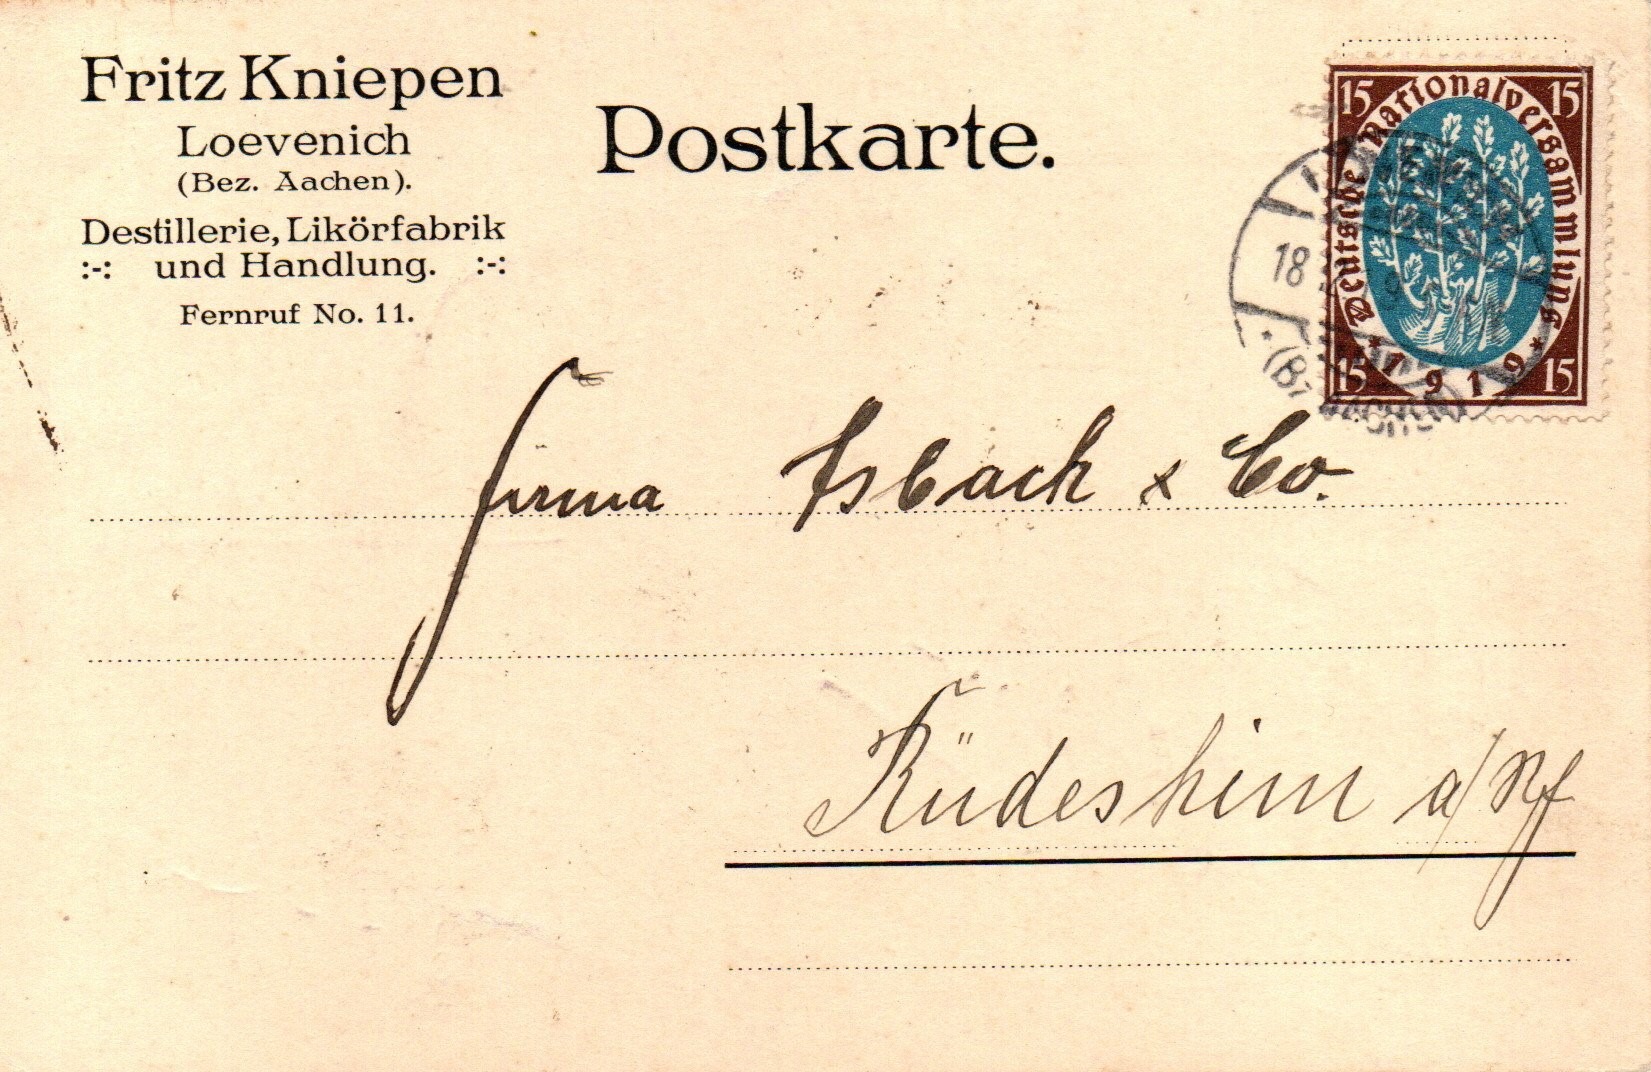 Fritz Kniepen
Loevenich
(Bez. Aachen).
Destillerie, Likörfabrik
:-: und Handlung. :-:
Fernruf No. 11.
Postkarte.
15 15
Deutsche Nationalversammlung
* 1919 *
15 15
18
Firma Asbach & Co.
Rüdesheim a/Rh